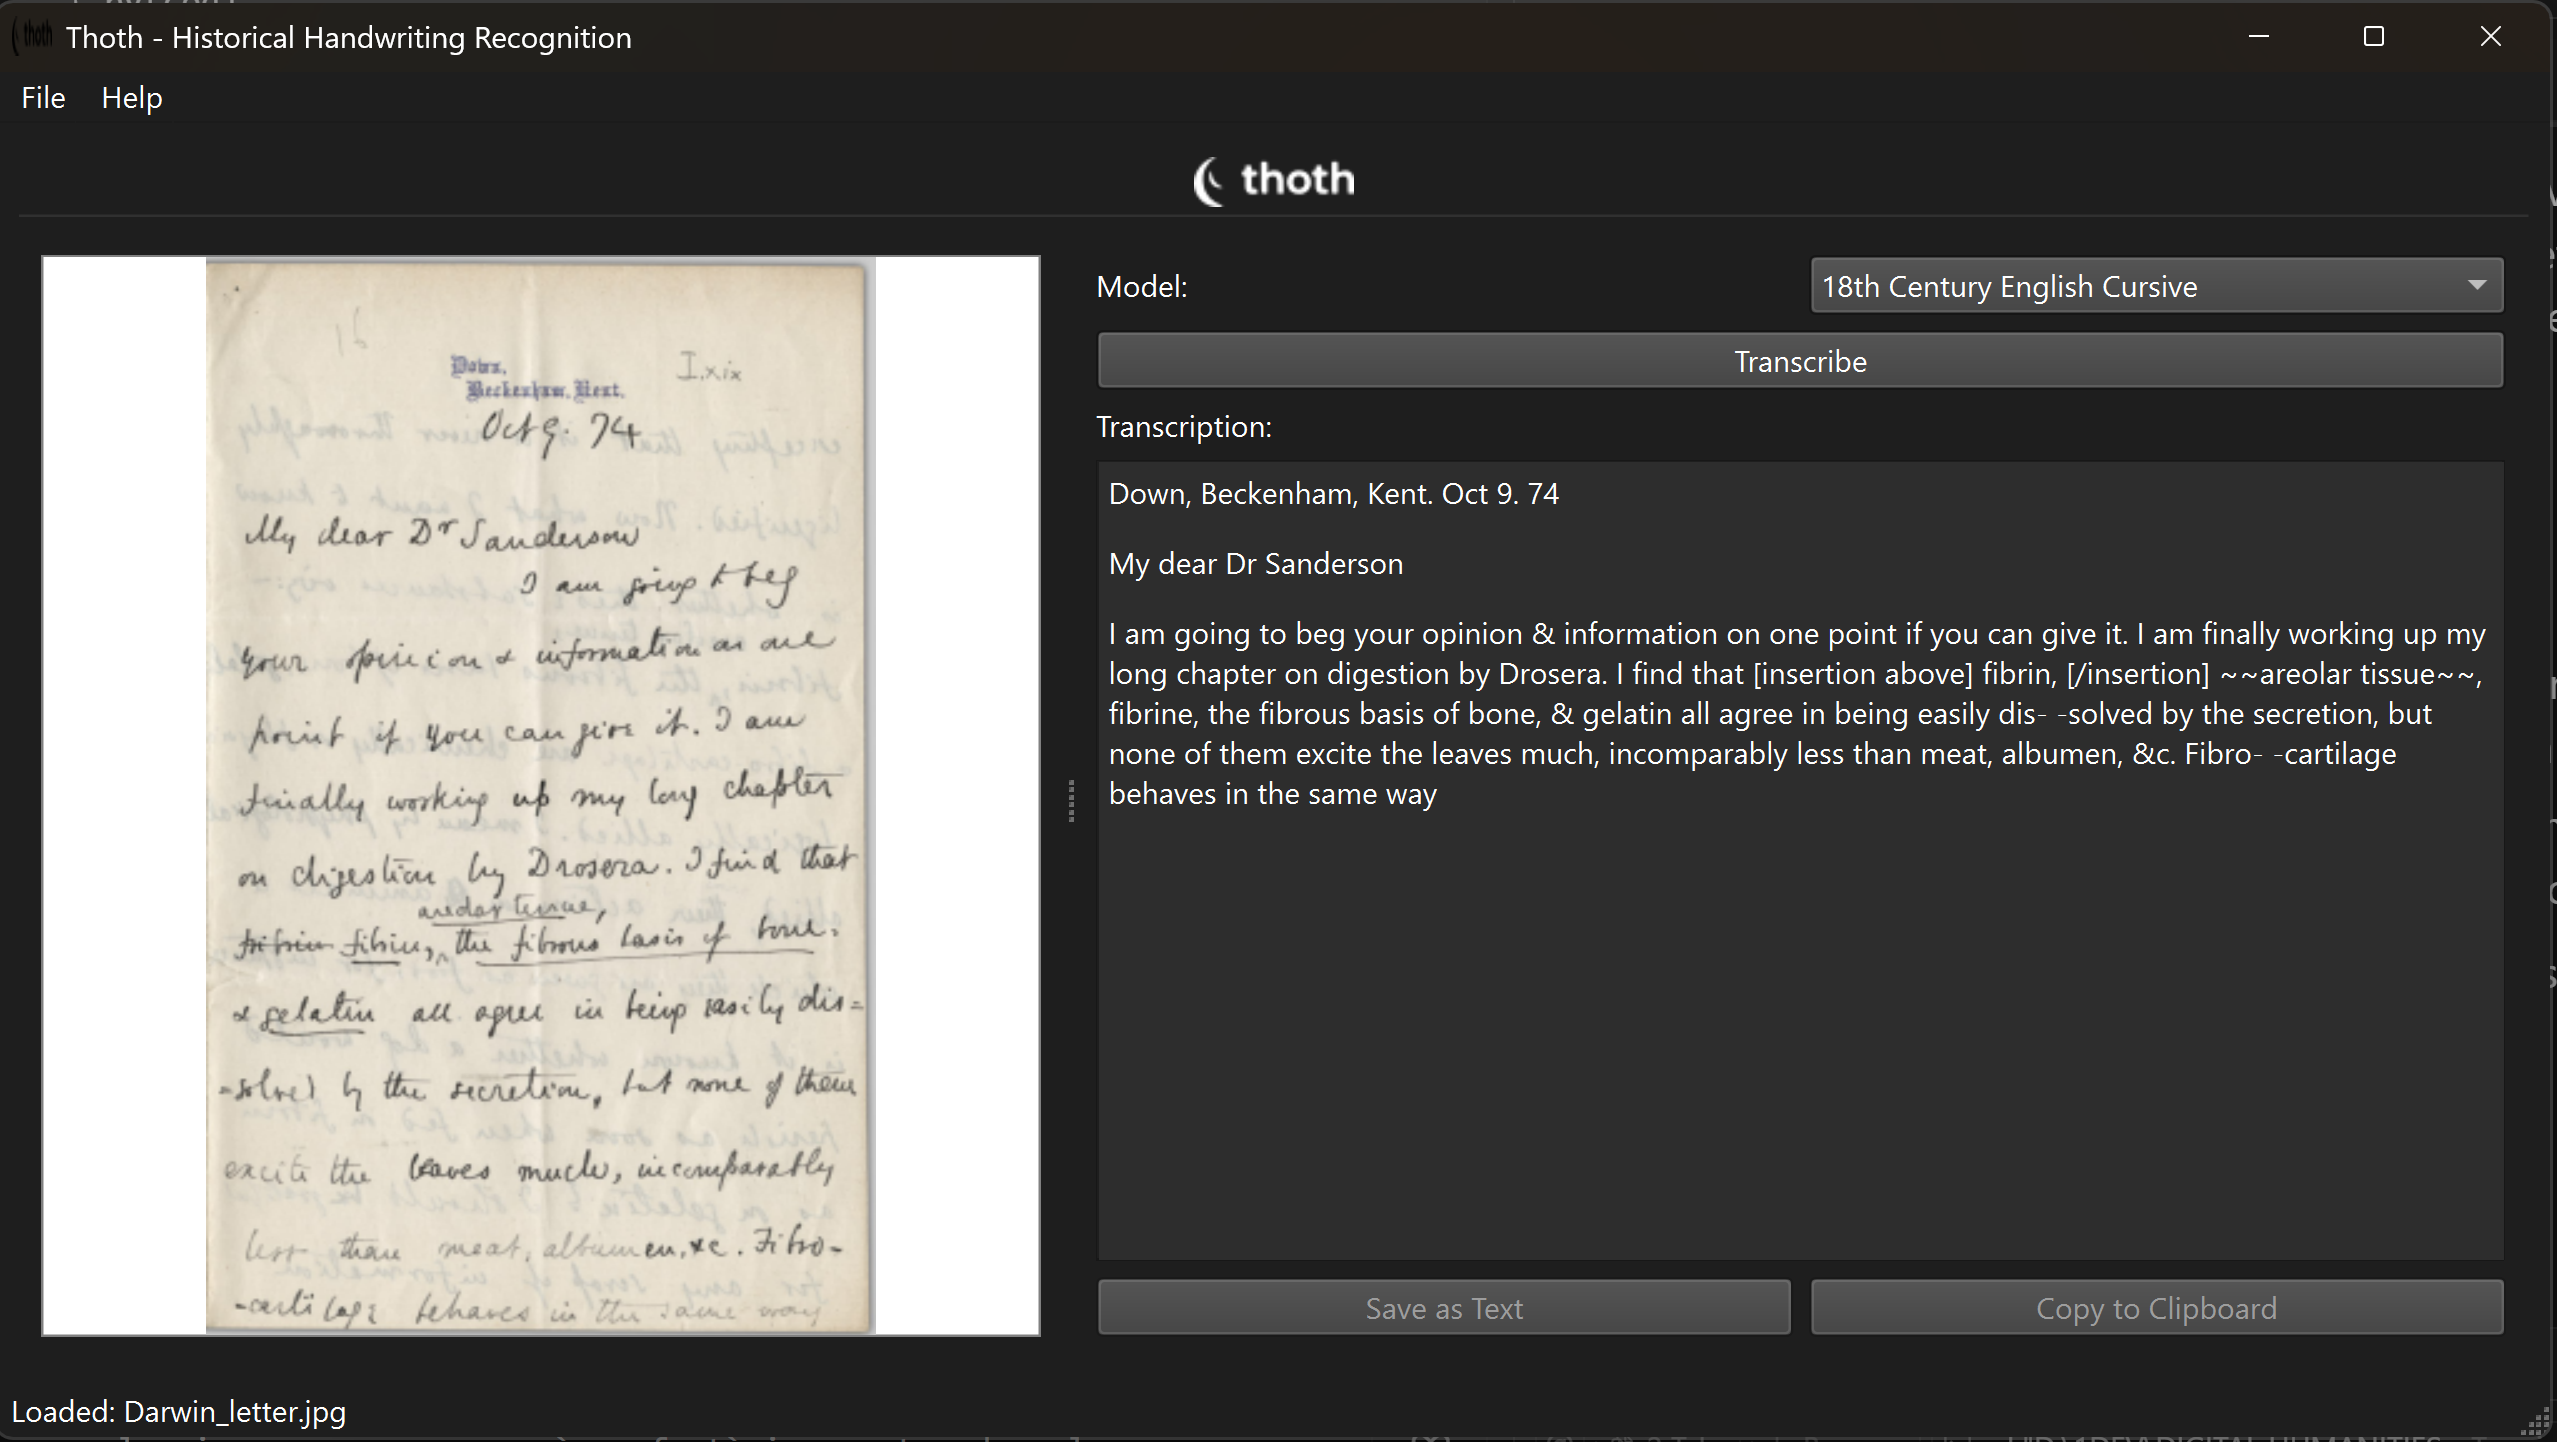 thoth Thoth - Historical Handwriting Recognition
File Help
thoth
Down,
Beckenham, Kent.
I.xix
Oct 9. 74
My dear Dr Sanderson
I am going to beg
your opinion & information on one
point if you can give it. I am
finally working up my long chapter
on digestion by Drosera. I find that
areolar tissue,
fibrin, the fibrous basis of bone,
& gelatin all agree in being easily dis=
=solved by the secretion, but none of them
excite the leaves much, incomparably
less than meat, albumen, &c. Fibro-
-cartilage behaves in the same way
Model:
18th Century English Cursive
Transcribe
Transcription:
Down, Beckenham, Kent. Oct 9. 74
My dear Dr Sanderson
I am going to beg your opinion & information on one point if you can give it. I am finally working up my
long chapter on digestion by Drosera. I find that [insertion above] fibrin, [/insertion] ~~areolar tissue~~,
fibrine, the fibrous basis of bone, & gelatin all agree in being easily dis- -solved by the secretion, but
none of them excite the leaves much, incomparably less than meat, albumen, &c. Fibro- -cartilage
behaves in the same way
Save as Text
Copy to Clipboard
Loaded: Darwin_letter.jpg